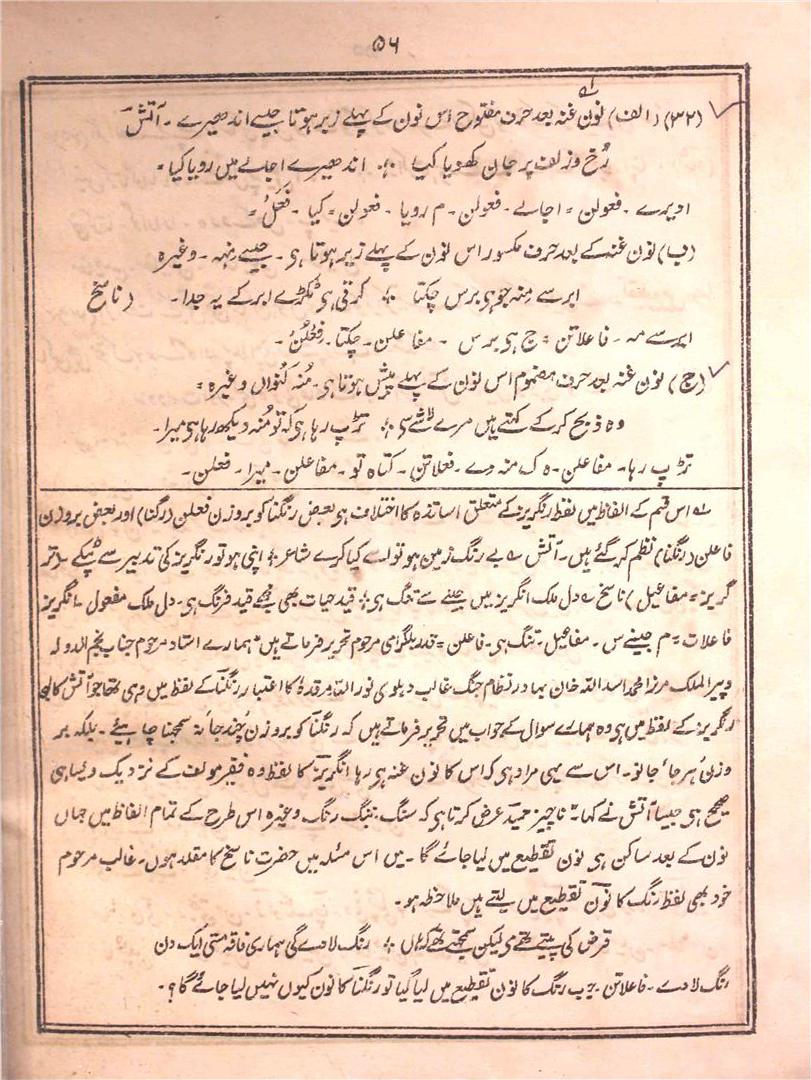 ۵۶
(۳۲) (الف) نون غنہ بعد حرف مفتوح اس نون کے پہلے زبر ہوتا جیسے اندھیرے ۔ آتش
رُخ و زلف پر جان کھویا کیا ؛ اندھیرے اجالے میں رویا کیا =
ادیرے ۔ فعولن = اجالے ۔ فعولن ۔ م رویا ۔ فعولن = کیا ۔ فَعَلْ =
(ب) نون غنہ کے بعد حرف مکسور اس نون کے پہلے زیر ہوتا ہی ۔ جیسے منہہ ۔ وغیرہ
ابر سے مِنہ جو ہی برس چکتا ؛ کرتی ہی ٹکڑے ابر کے یہ جدا ۔ (ناسخ
ابر سے مہ ۔ فاعلاتن = ج ہی برس ۔ مفاعلن ۔ چکتا ۔ فعلن ۔
(ج) نون غنہ بعد حرف مضموم اس نون کے پہلے پیش ہوتا ہی ۔ مُنہ کنواں وغیرہ =
وہ ذبح کر کے کہتے ہیں مرے لاشے سی ؛ تڑپ رہا ہی کہ تو مُنہ دیکھ رہا ہی میرا ۔
تڑپ رہا ۔ مفاعلن ۔ ہ ک منہ دے ۔ فعلاتن ۔ کتاہ تو ۔ مفاعلن ۔ میرا ۔ فعلن ۔
لہ اس قسم کے الفاظ میں لفظ رنگریز کے متعلق اساتذہ کا اختلاف ہی بعض رنگنا کو بروزن فعلن (رگنا) اور بعض بروزن
فاعلن (رنگنا) نظم کر گئے ہیں ۔ آتش ے بے رنگ زمین ہو تو اسے کیا کرے شاعر ؛ اپنی ہو تو رنگریز کی تدبیر سے ٹپکے ۔ (تر
گریز = مفاعیل) ناسخ ے دل ملک انگریز میں جینے سے تنگ ہی ؛ قید حیات بھی مجھے قید فرنگ ہی ۔ دل ملک مفعول ۔ انگریز
فاعلات = م جینے س ۔ مفاعیل ۔ تنگ ہی ۔ فاعلن = قدر بلگرامی مرحوم تحریر فرماتے ہیں " ہمارے استاد مرحوم جناب نجم الدولہ
دبیر الملک مرزا محمد اسد اللہ خان بہادر نظام جنگ غالب دہلوی نور اللہ مرقدہٗ کا اعتبار رنگنا کے لفظ میں وہی تھا جو آتش کا ہی
رنگریز کے لفظ میں ہی وہ ہمارے سوال کے جواب میں تحریر فرماتے ہیں کہ رنگنا کو بروزن چند جا نہ سمجھنا چاہیئے ۔ بلکہ بر
وزن ہر جا جانو ۔ اس سے یہی مراد ہی کہ اس کا نون غنہ ہی رہا انگریز کا لفظ وہ فقیر مولف کے نزدیک ویسا ہی
صحیح ہی جیسا آتش نے کہا ۔" ناچیز حمید عرض کرتا ہی کہ سنگ ۔ رنگ وغیرہ اس طرح کے تمام الفاظ میں جہاں
نون کے بعد ساکن ہی نون تقطیع میں لیا جائے گا ۔ میں اس مسئلہ میں حضرت ناسخ کا مقلد ہوں ۔ غالب مرحوم
خود بھی لفظ رنگ کا نون تقطیع میں لیتے ہیں ملاحظہ ہو ۔
قرض کی پیتے تھے می لیکن سمجھتے تھے کہ ہاں ؛ رنگ لاوے گی ہماری فاقہ مستی ایک دن
رنگ لاوے ۔ فاعلاتن ۔ جب رنگ کا نون تقطیع میں لیا گیا تو رنگنا کا نون کیوں نہیں لیا جائے گا ؟ ۔